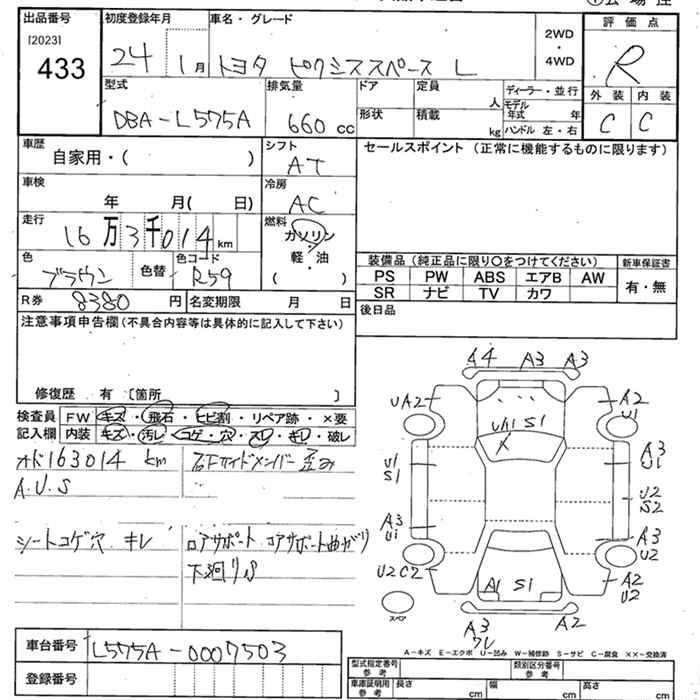 出品番号
[2023]
433
初度登録年月
24 1月
車名・グレード
トヨタ ピクシススペース L
2WD
・
4WD
評価点
R
外装 内装
C C
型式
DBA-L575A
排気量
660 cc
ドア
形状
定員
人
積載
kg
ディーラー・並行
モデル
年式 年
ハンドル 左・右
車歴
自家用・( )
シフト
AT
セールスポイント (正常に機能するものに限ります)
車検
年 月( 日)
冷房
AC
走行
16万3千014 km
燃料
ガソリン
・
軽・油
( )
色
ブラウン
色替
色コード
R59
装備品 (純正品に限り〇をつけてください)
新車保証書
PS PW ABS エアB AW
有・無
SR ナビ TV カワ
R券 8380 円
名変期限 月 日
後日品
注意事項申告欄 (不具合内容等は具体的に記入して下さい)
修復歴 有 [箇所 ]
検査員
記入欄
FW キズ・飛石・ヒビ割・リペア跡・×要
内装 キズ・汚レ・コゲ・穴・スレ・キレ・破レ
オド163014 km
A.U.S
右Fサイドメンバー歪み
シートコゲ穴 キレ
ロアサポート コアサポート曲がり
下廻りS
A4 A3 A3
UA2 A2
U1
UA1 S1
X
U1
S1
A3
U1
U2
S2
A3
U1
A3
U2
U2C2
A2
U2
A1 S1
A3
ワレ
A2
スペア
A-キズ E-エクボ U-凹み W-補修跡 S-サビ C-腐食 ××-交換済
車台番号 L575A-0007503
登録番号
型式指定番号
参考
類別区分番号
参考
車庫証明用
参考
長さ cm
幅 cm
高さ cm